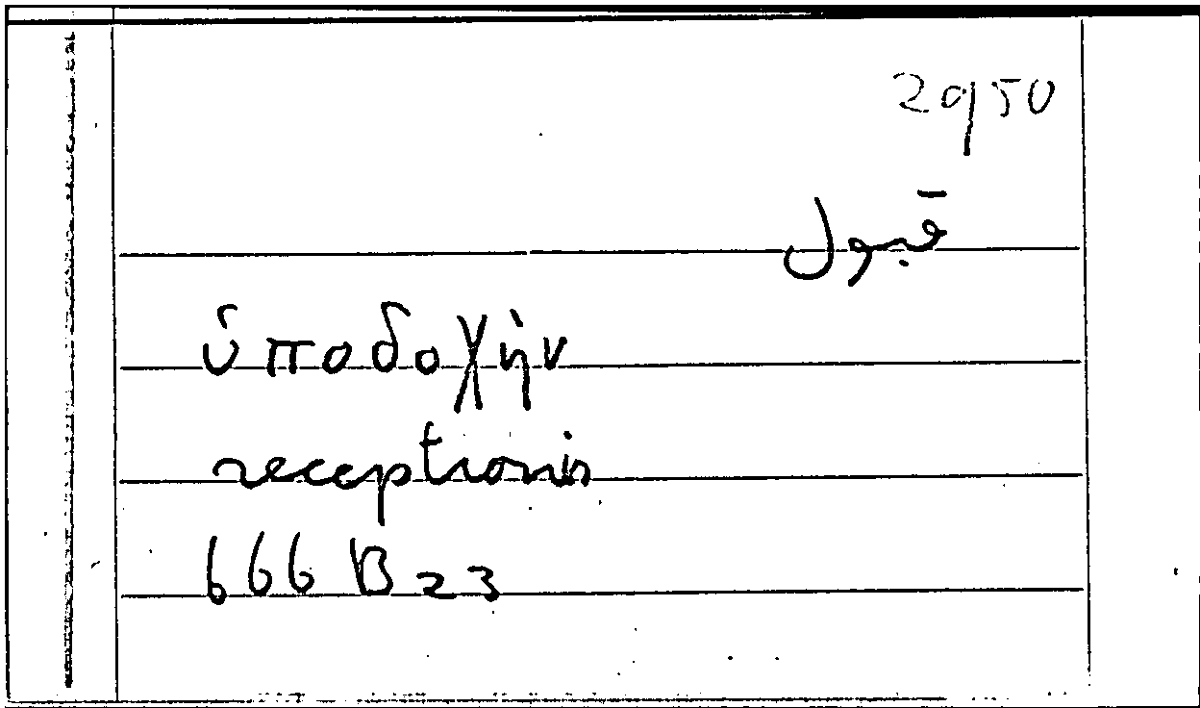 2950
قبول
ὑποδοχήν
receptionis
666 B 23